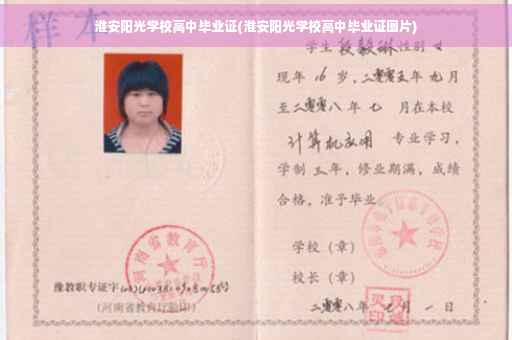 样本
淮安阳光学校高中毕业证(淮安阳光学校高中毕业证图片)
学生段毅琳性别女
现年16岁，二零零五年九月
至二零零八年七 月在本校
计算机应用 专业学习，
学制三年，修业期满，成绩
合格，准予毕业。
学校（章）
校长（章）
二零零八年 月一日
河南省教育厅
豫教职专证字
号
(河南省教育厅验印)